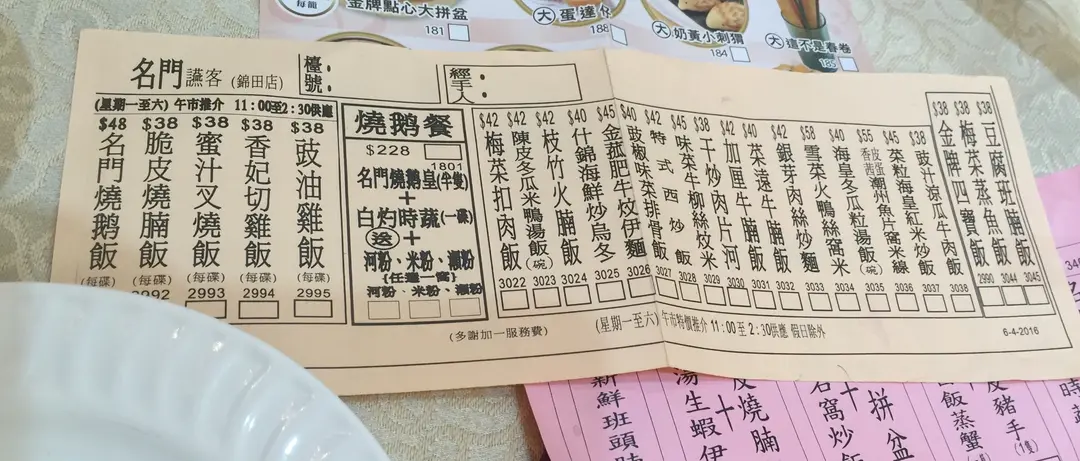 每籠
金牌點心大拼盆
181
大 蛋達仔
188
大 奶黃小刺猬
184
大 這不是春卷
185
名門讌客 (錦田店)
檯號：
經手人：
(星期一至六) 午市推介 11:00至2:30供應
$48 名門燒鵝飯 (每碟)
$38 脆皮燒腩飯 (每碟) 2992
$38 蜜汁叉燒飯 (每碟) 2993
$38 香妃切雞飯 (每碟) 2994
$38 豉油雞飯 (每碟) 2995
燒鵝餐
$228
1801
名門燒鵝皇(半隻)
+
白灼時蔬(一碟)
送 +
河粉、米粉、瀨粉
{任選一窩}
河粉、米粉、瀨粉
$42 梅菜扣肉飯 3022
$42 陳皮冬瓜米鴨湯飯(碗) 3023
$42 枝竹火腩飯 3024
$40 什錦海鮮炒烏冬 3025
$45 金菰肥牛炆伊麵 3026
$40 豉椒味菜排骨飯 3027
$42 特式西炒飯 3028
$45 味菜牛柳絲炆米 3029
$38 干炒肉片河 3030
$42 加厘牛腩飯 3031
$40 菜遠牛腩飯 3032
$42 銀芽肉絲炒麵 3033
$58 雪菜火鴨絲窩米 3034
$40 海皇冬瓜粒湯飯(碗) 3035
$55 皮蛋香茜潮州魚片窩米線 3036
$45 菜粒海皇紅米炒飯 3037
$38 豉汁涼瓜牛肉飯 3038
$38 金牌四寶飯 2990
$38 梅菜蒸魚飯 3044
$38 豆腐班腩飯 3045
(多謝加一服務費)
(星期一至六) 午市特價推介 11:00至2:30供應 假日除外
6-4-2016
新鮮班頭腩
湯生蝦伊
皮燒腩
窩炒飯
拼盆
飯蒸蟹
皮豬手(1隻)
時蔬